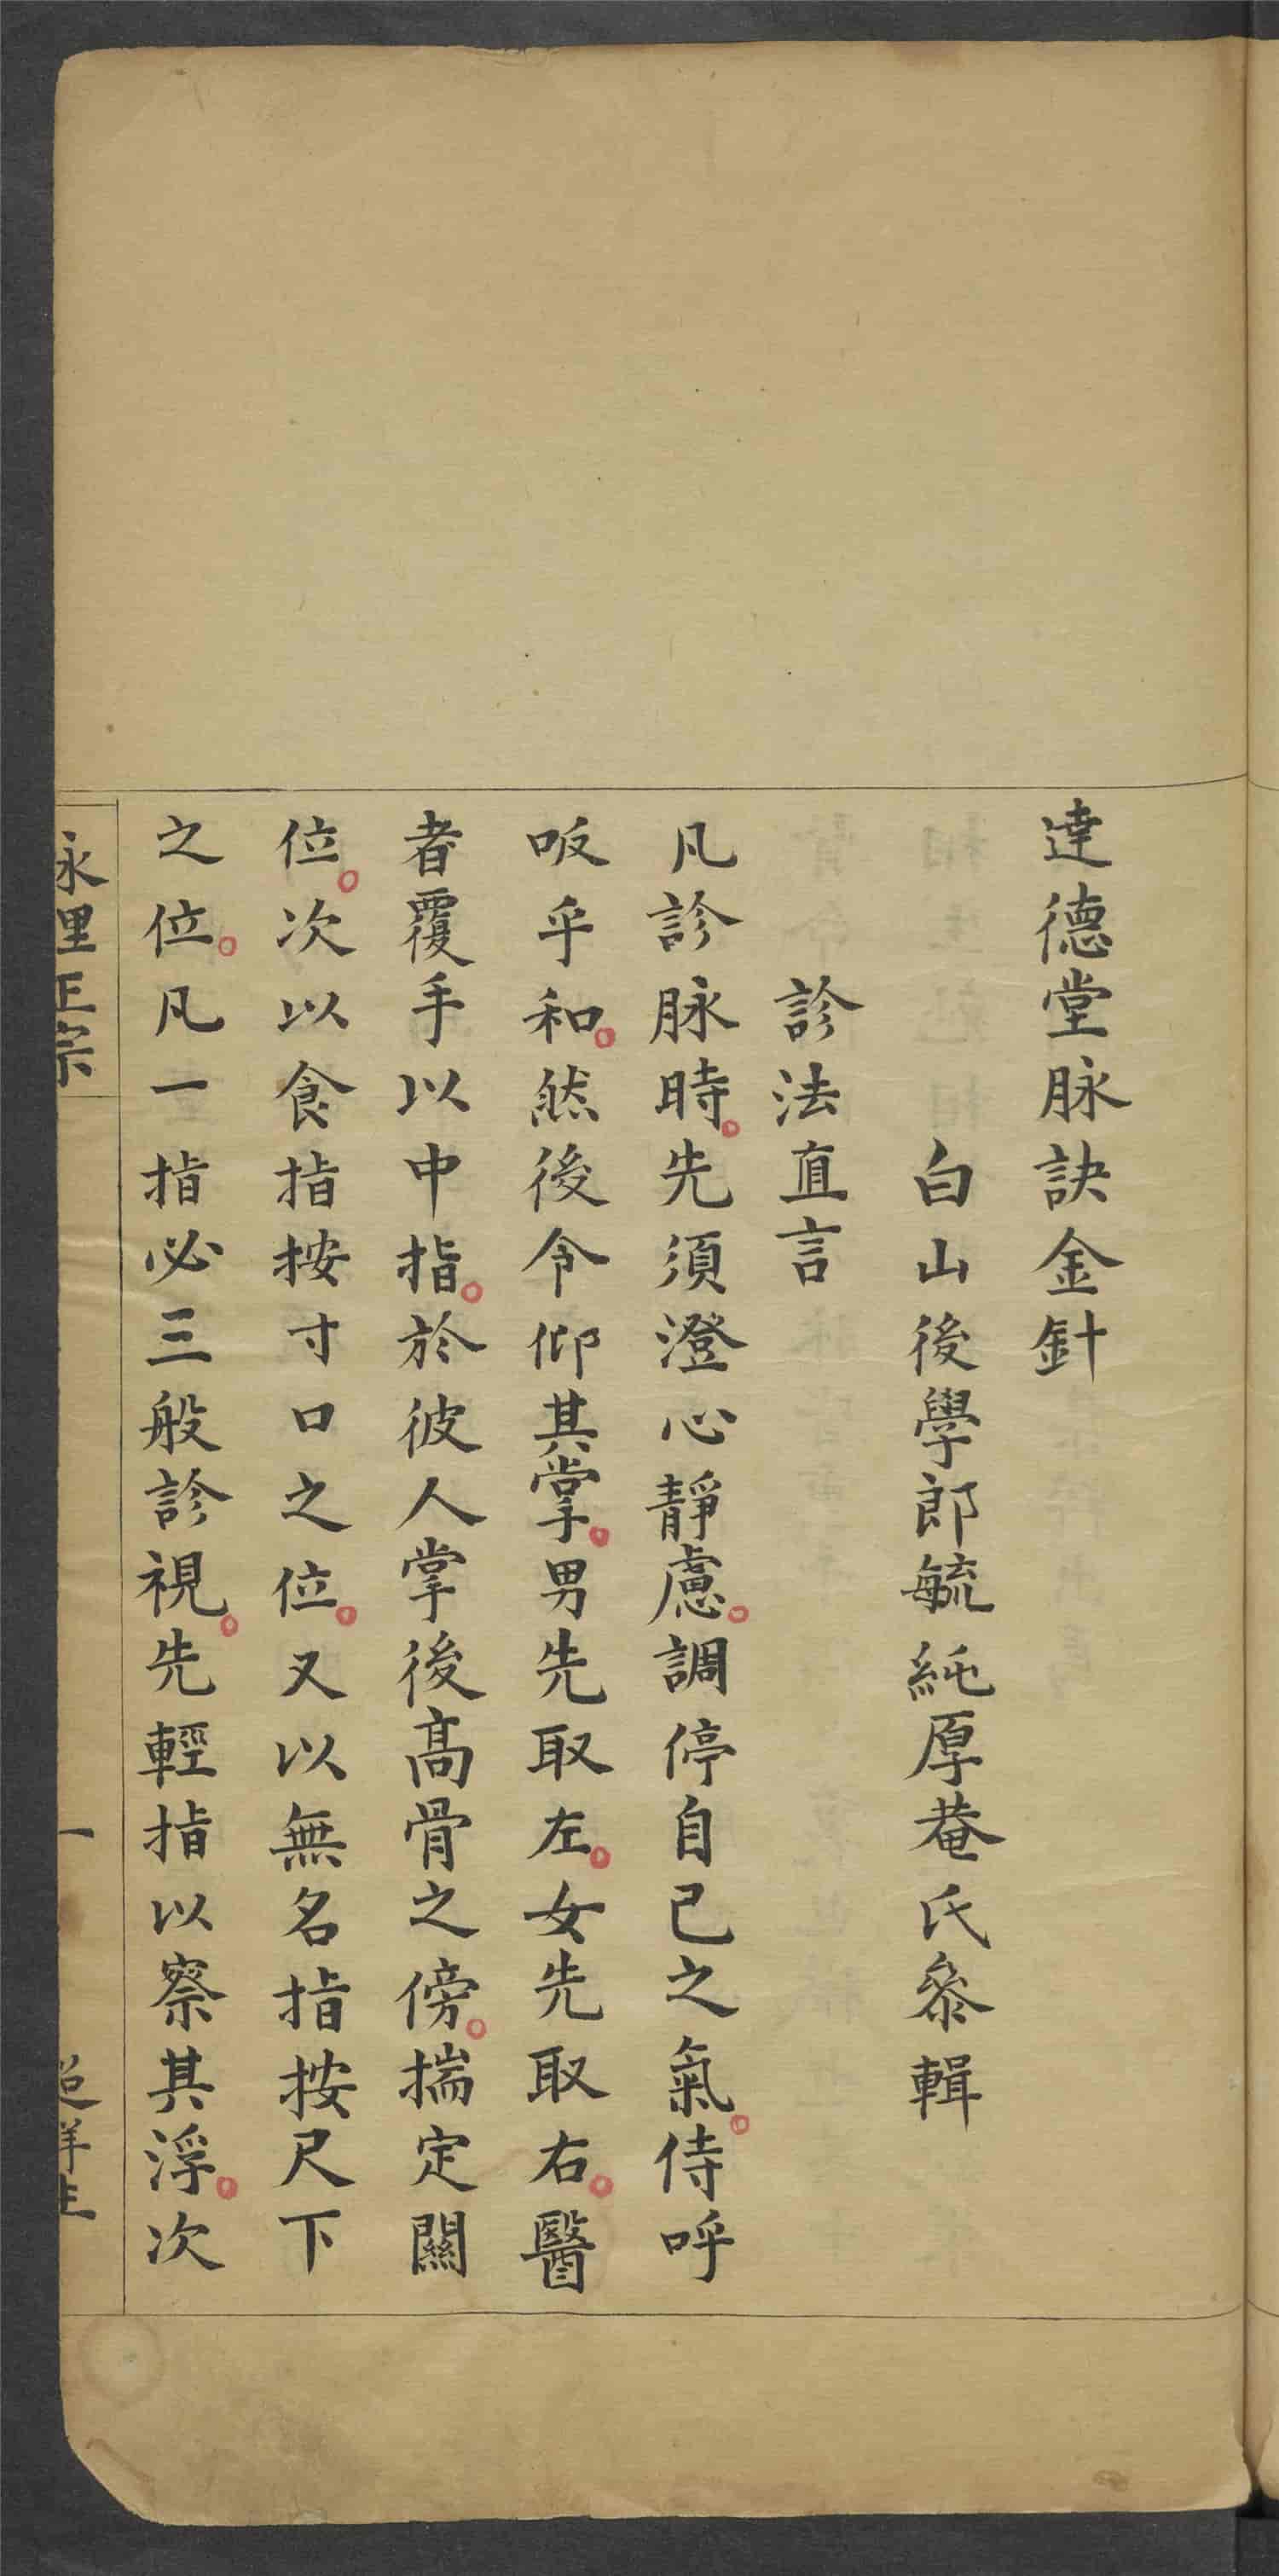 達德堂脉訣金針
白山後學郎毓純厚菴氏叅輯
診法直言
凡診脉時。先須澄心靜慮。調停自己之氣。侍呼
吸乎和。然後令仰其掌。男先取左。女先取右。醫
者覆手以中指。於彼人掌後高骨之傍。揣定關
位。次以食指按寸口之位。又以無名指按尺下
之位。凡一指必三般診視。先輕指以察其浮。次
永理正宗
一